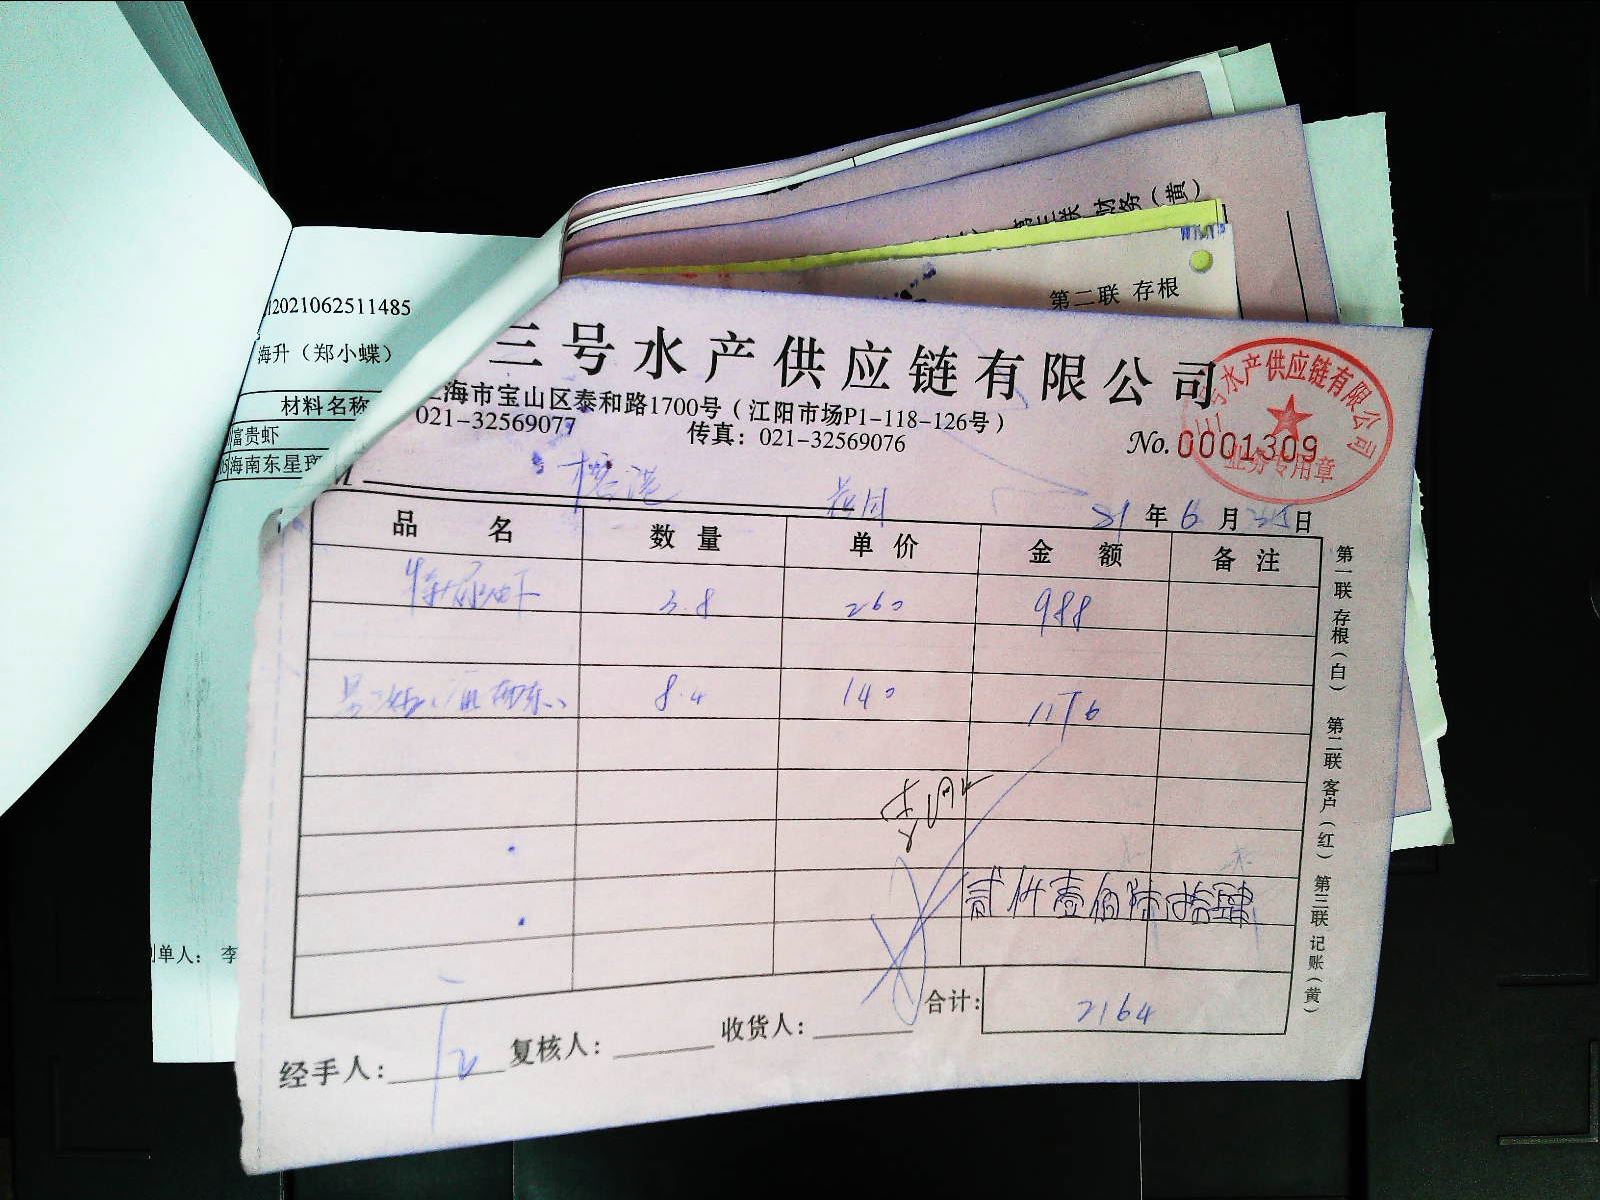 第三联 财务（黄）
第二联 存根
2021062511485
海升（郑小蝶）
材料名称
富贵虾
海南东星斑
制单人： 李
三号水产供应链有限公司
上海市宝山区泰和路1700号（江阳市场P1-118-126号）
021-32569077 传真：021-32569076
No.0001309
三号水产供应链有限公司
业务专用章
21 年 6 月 25 日
品 名 数 量 单 价 金 额 备 注
3.8 260 988
8.4 140 1176
贰仟壹佰陆拾肆
合计： 2164
经手人： 复核人： 收货人：
第一联 存根（白） 第二联 客户（红） 第三联 记账（黄）